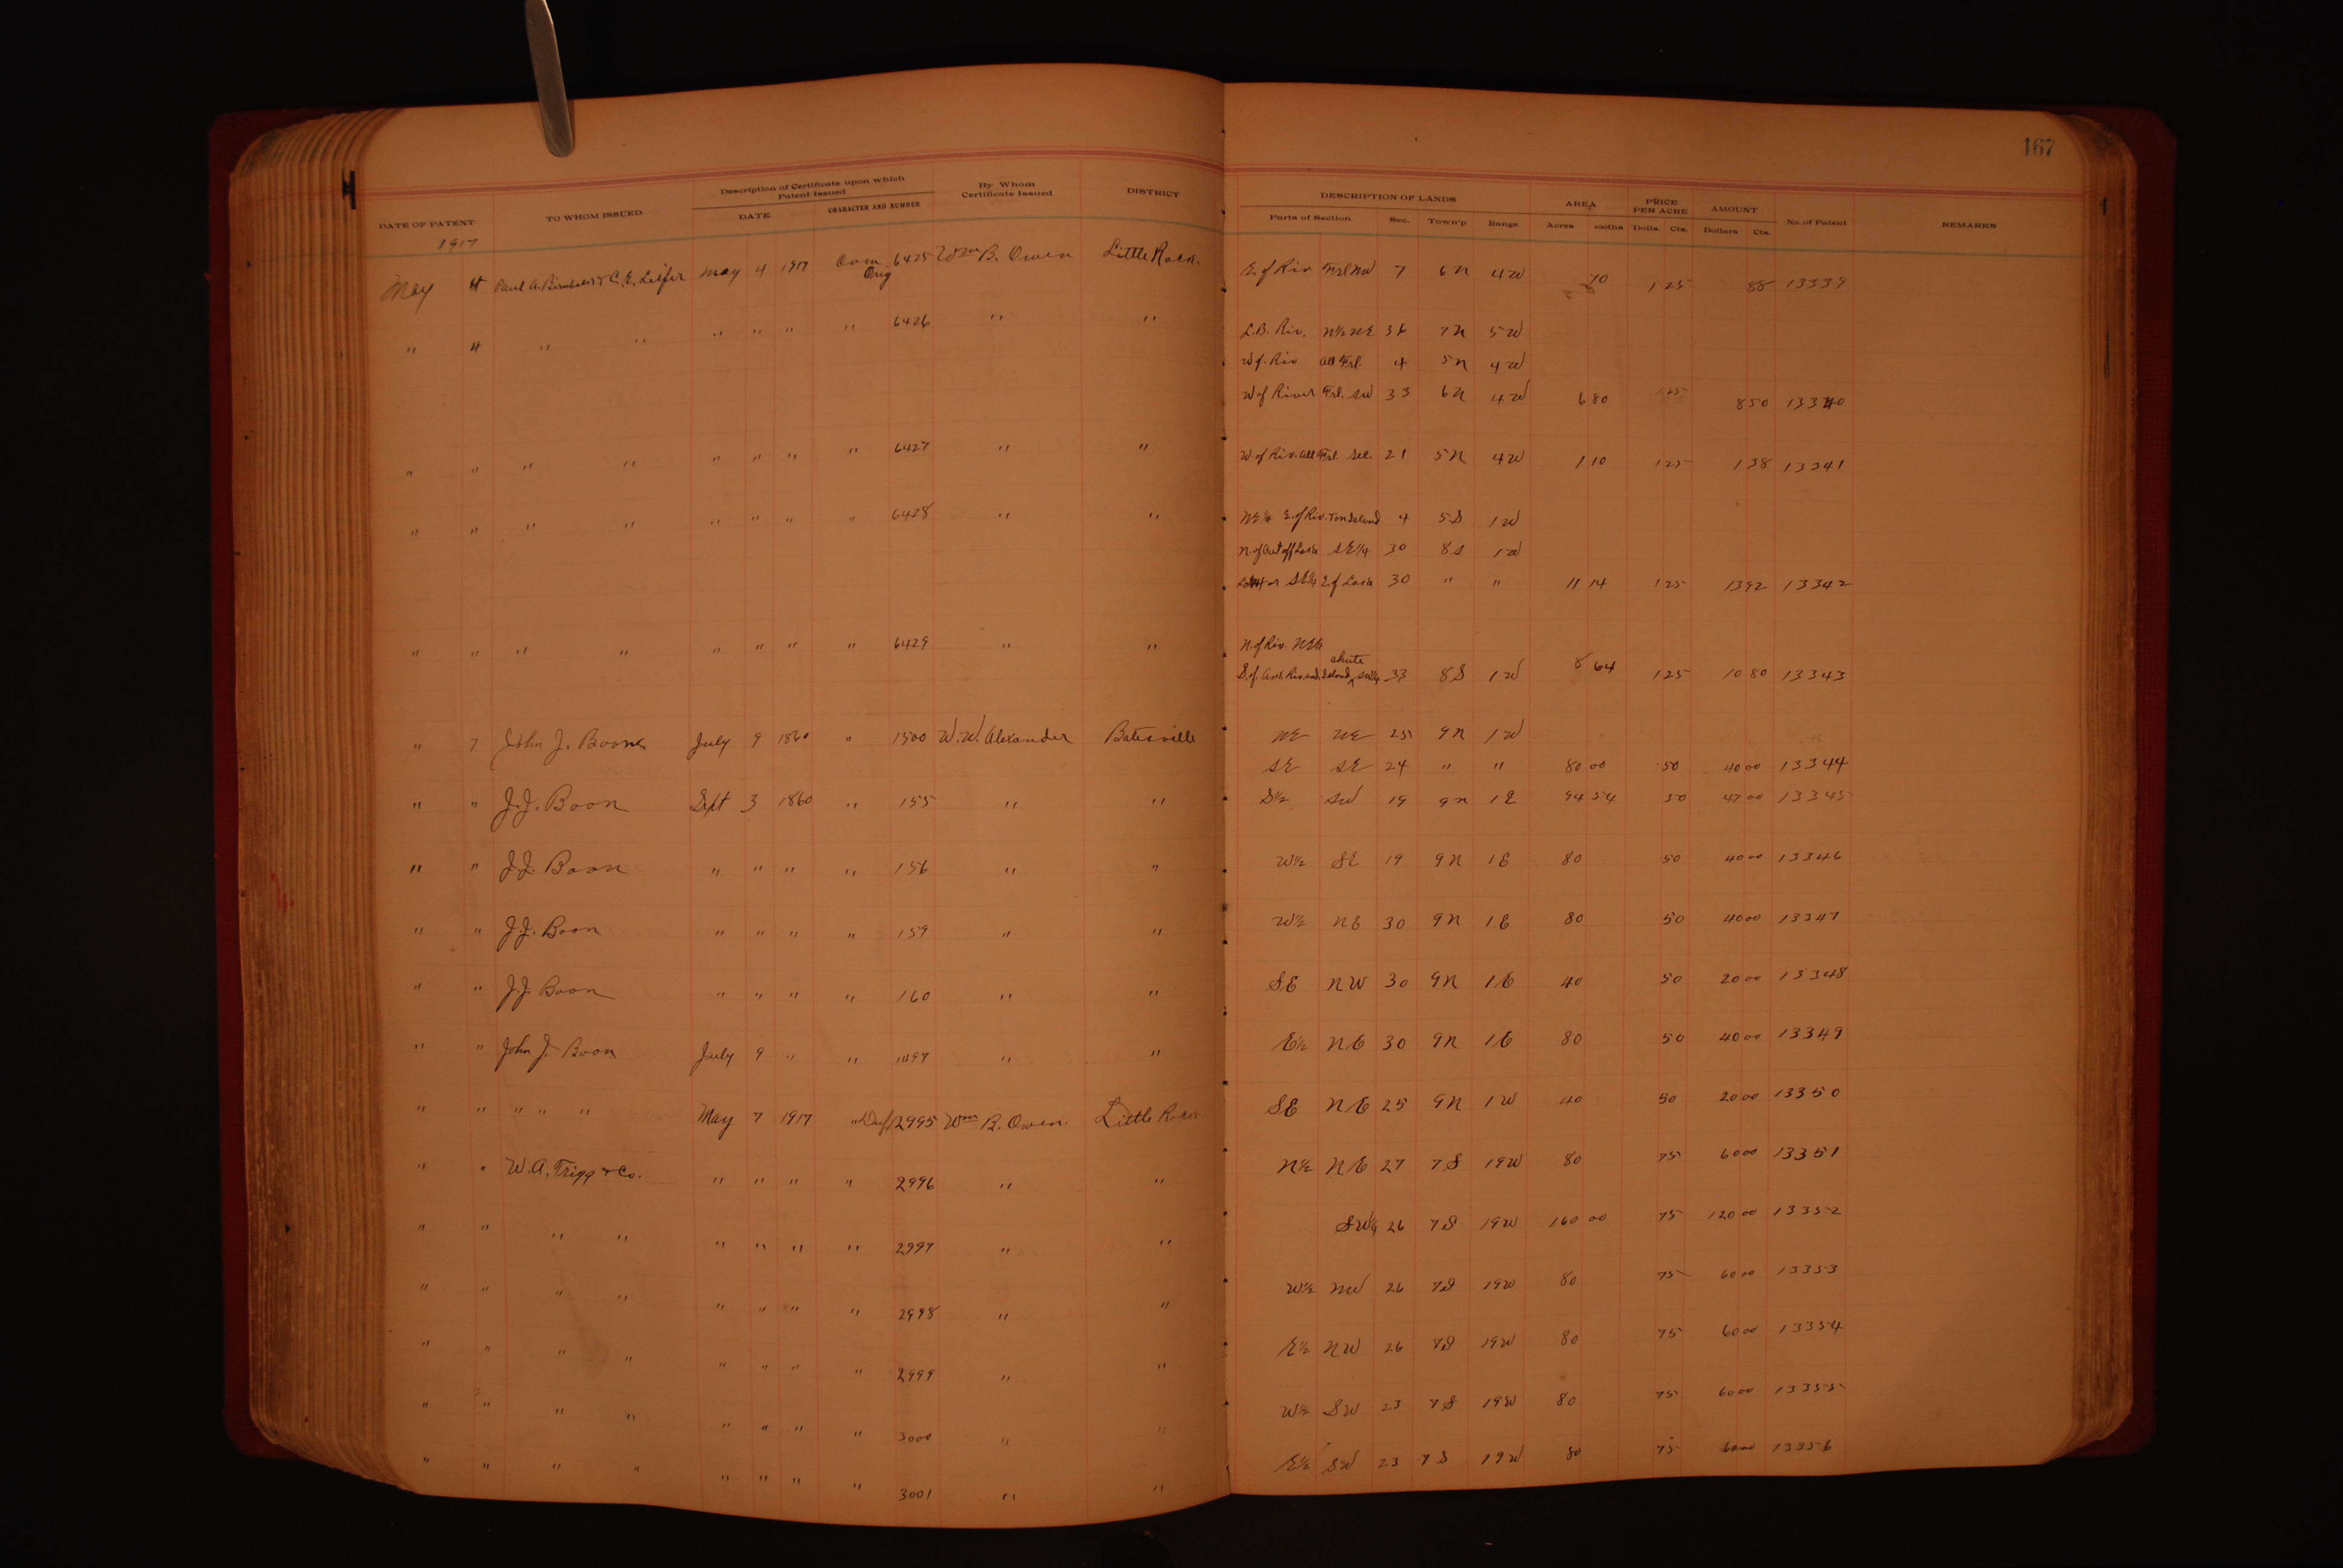 167
DATE OF PATENT TO WHOM ISSUED Description of Certificate upon which Patent Issued By Whom Certificate Issued DISTRICT DESCRIPTION OF LANDS AREA PRICE PER ACRE AMOUNT No. of Patent REMARKS
DATE CHARACTER AND NUMBER Parts of Section Sec. Town'p Range Acres moths Dolls. Cts. Dollars Cts.
1917
May 4 Paul A. & C. E. Liefer May 4 1917 Com Orig 6425 Wm B. Owen Little Rock. E. of Riv Frl NW 7 6N 4W 70 1 25 88 13339
" 4 " " " " " " 6426 " " L.B. Riv. N½ NE 36 7N 5W
W of. Riv all Frl. 4 5N 4W
W of River Frl. SW 33 6N 4W 6 80 1 25 8 50 13340
" " " " " " " " 6427 " " W. of Riv. all Frl. Sec. 21 5N 4W 1 10 1 25 1 38 13341
" " " " " " " " 6428 " " NE¼ E. of Riv. Island 4 5S 1W
N. of Cut off Lake SE¼ 30 8S 1W
Lot 4 or SE¼ E. of Lake 30 " " 11 14 1 25 13 92 13342
" " " " " " " " 6429 " " N. of Riv. NE¼
S. of. Ark Riv. and Island chute 33 8S 1W 8 64 1 25 10 80 13343
" 7 John J. Boone July 9 1860 " 1500 W. W. Alexander Batesville NE NE 25 9N 1W
SE SE 24 " " 80 00 50 40 00 13344
" " J. J. Boon Sept 3 1860 " 155 " " S½ SW 19 9N 1E 94 54 50 47 00 13345
" " J. J. Boon " " " " 156 " " W½ SE 19 9N 1E 80 50 40 00 13346
" " J. J. Boon " " " " 159 " " W½ NE 30 9N 1E 80 50 40 00 13347
" " J. J. Boon " " " " 160 " " SE NW 30 9N 1E 40 50 20 00 13348
" " John J. Boon July 9 " " 1497 " " E½ NE 30 9N 1E 80 50 40 00 13349
" " " " " May 7 1917 " Dup 2995 Wm B. Owen. Little Rock SE NE 25 9N 1W 40 50 20 00 13350
" " W. A. Trigg & Co. " " " " 2996 " " N½ NE 27 7S 19W 80 75 60 00 13351
" " " " " " " " 2997 " " SW¼ 26 7S 19W 160 00 75 120 00 13352
" " " " " " " " 2998 " " W½ NW 26 7S 19W 80 75 60 00 13353
" " " " " " " " 2999 " " E½ NW 26 7S 19W 80 75 60 00 13354
" " " " " " " " 3000 " " W½ SW 23 7S 19W 80 75 60 00 13355
" " " " " " " " 3001 " " E½ SW 23 7S 19W 80 75 60 00 13356